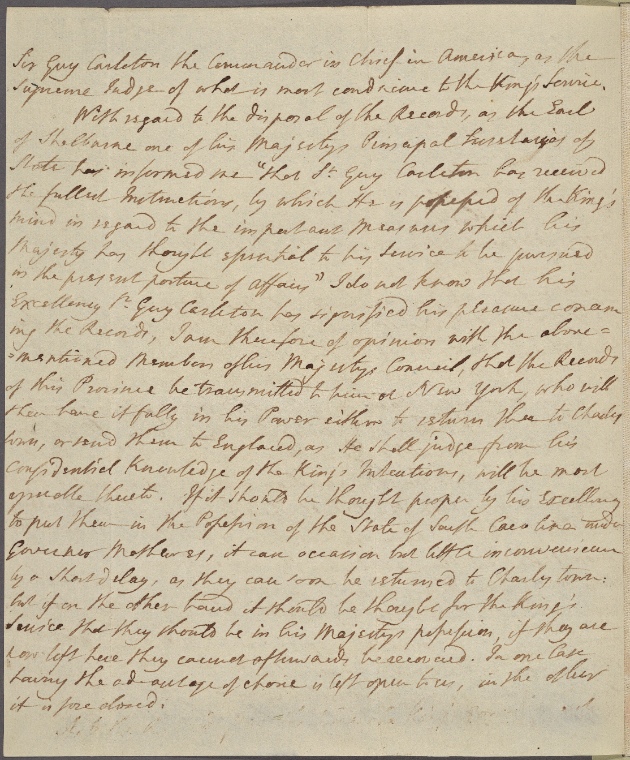 Sir Guy Carleton the Commander in Chief in America, as the
Supreme Judge of what is most conducive to the King's Service.
With regard to the disposal of the Records, as the Earl
of Shelburne one of his Majestys Principal Secretarys of
State has informed me "that Sr. Guy Carleton has received
the fullest Instructions, by which He is possessed of the King's
mind in regard to the important Measures which his
Majesty has thought essential to his Service to be pursued
in the present posture of Affairs" I do not know that his
Excellency Sr. Guy Carleton has signified his pleasure concern
ing the Records, I am therefore of opinion with the above=
=mentioned Members of his Majestys Council, that the Records
of this Province be transmitted to him at New York, who will
then have it fully in his Power either to return them to Charles
town, or send them to England, as He shall judge from his
Confidential Knowledge of the King's Intentions, will be most
agreable thereto. If it should be thought proper by his Excellency
to put them in the Possession of the State of South Carolina under
Governor Mathewes, it can occasion but little inconvenience
by a short delay, as they can soon be returned to Charlestown:
but if on the other hand it should be thought for the King's
Service that they should be in his Majestys possession, if they are
now left here they cannot afterwards be recovered. In one Case
having the advantage of choice is left open to us, in the other
it is foreclosed.